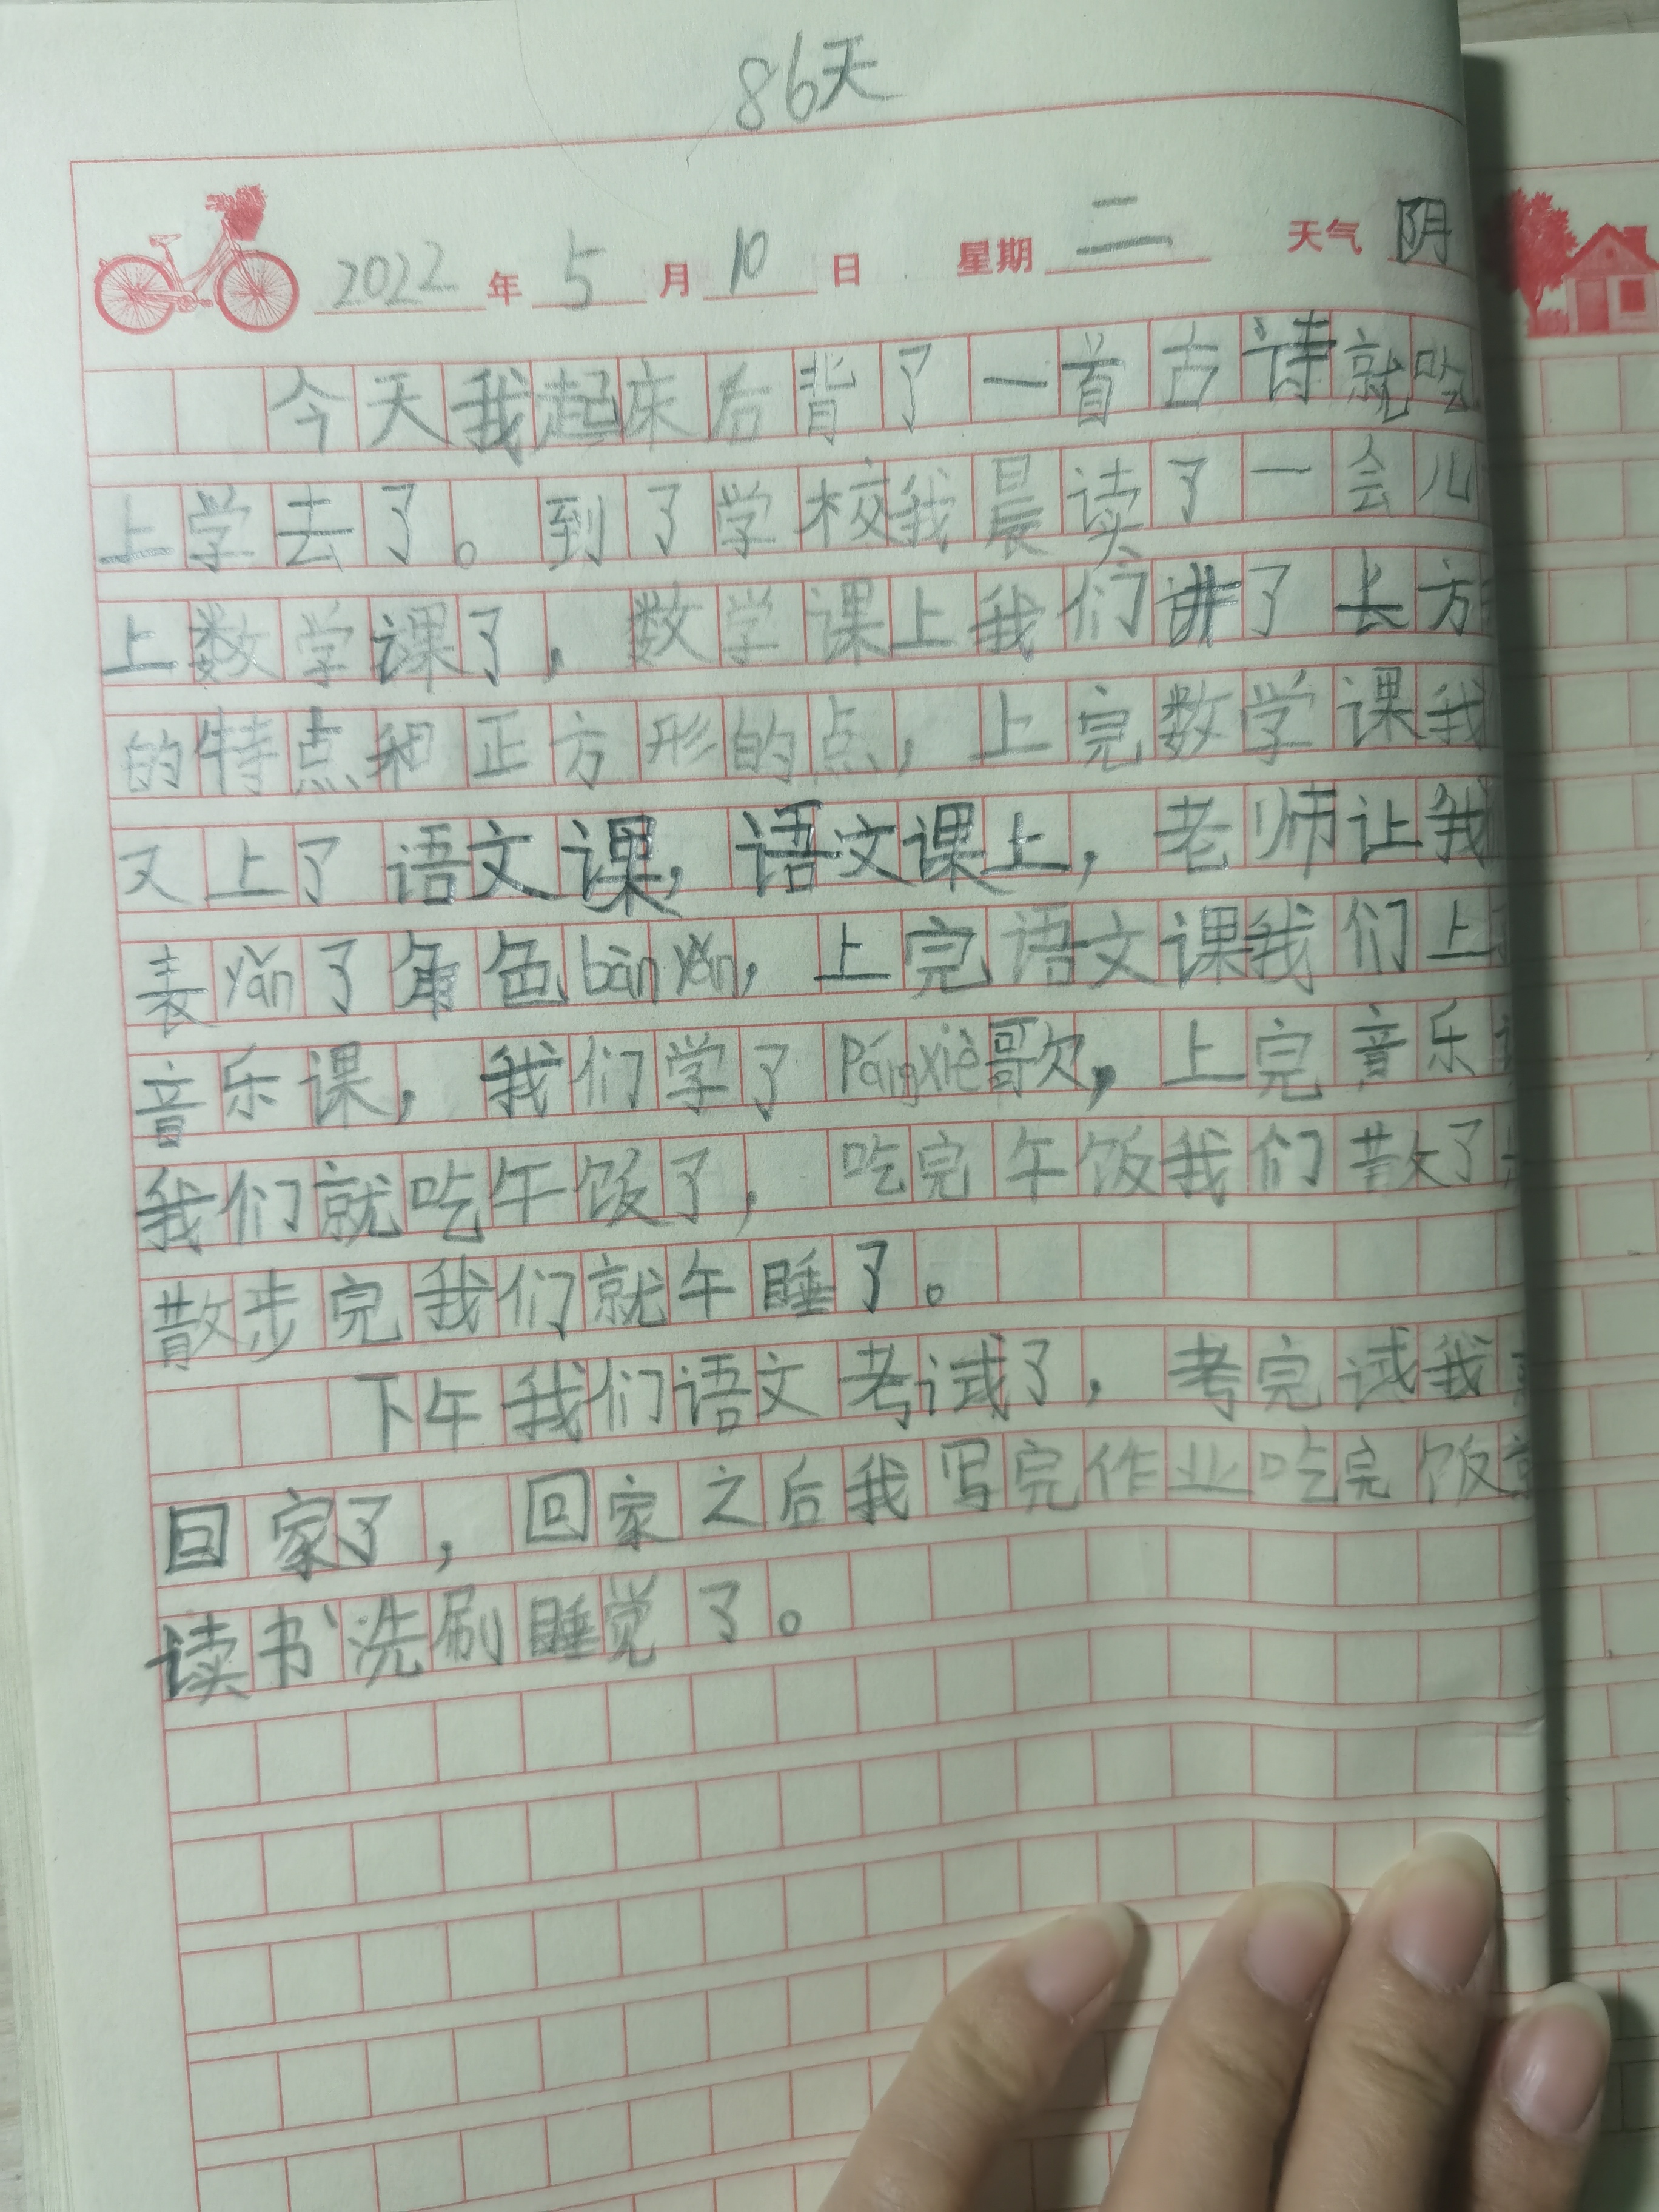 86天
2022年5月10日 星期二 天气阴
今天我起床后背了一首古诗就吃
上学去了。到了学校我晨读了一会儿
上数学课了,数学课上我们讲了长方
的特点和正方形的点,上完数学课我
又上了语文课,语文课上,老师让我
表yǎn了角色bàn yǎn,上完语文课我们上
音乐课,我们学了Páng xiè歌,上完音乐
我们就吃午饭了,吃完午饭我们散了
散步完我们就午睡了。
下午我们语文考试了,考完试我
回家了,回家之后我写完作业吃完饭
读书洗刷睡觉了。